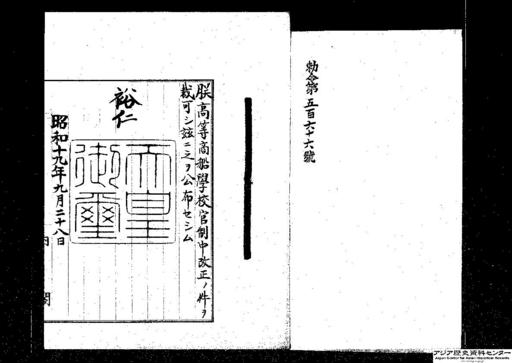 勅令第五百六十六號
朕高等商船學校官制中改正ノ件ヲ
裁可シ玆ニ之ヲ公布セシム
裕仁
天皇
御璽
昭和十九年九月二十八日
內閣
アジア歴史資料センター
Japan Center for Asian Historical Records